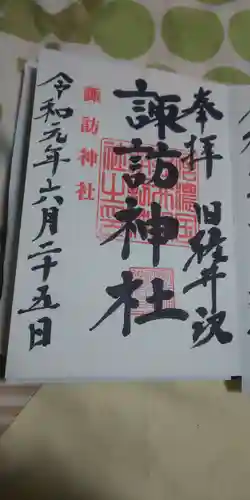 奉拝 旧軽井沢
諏訪神社
諏訪神社
令和元年六月二十五日